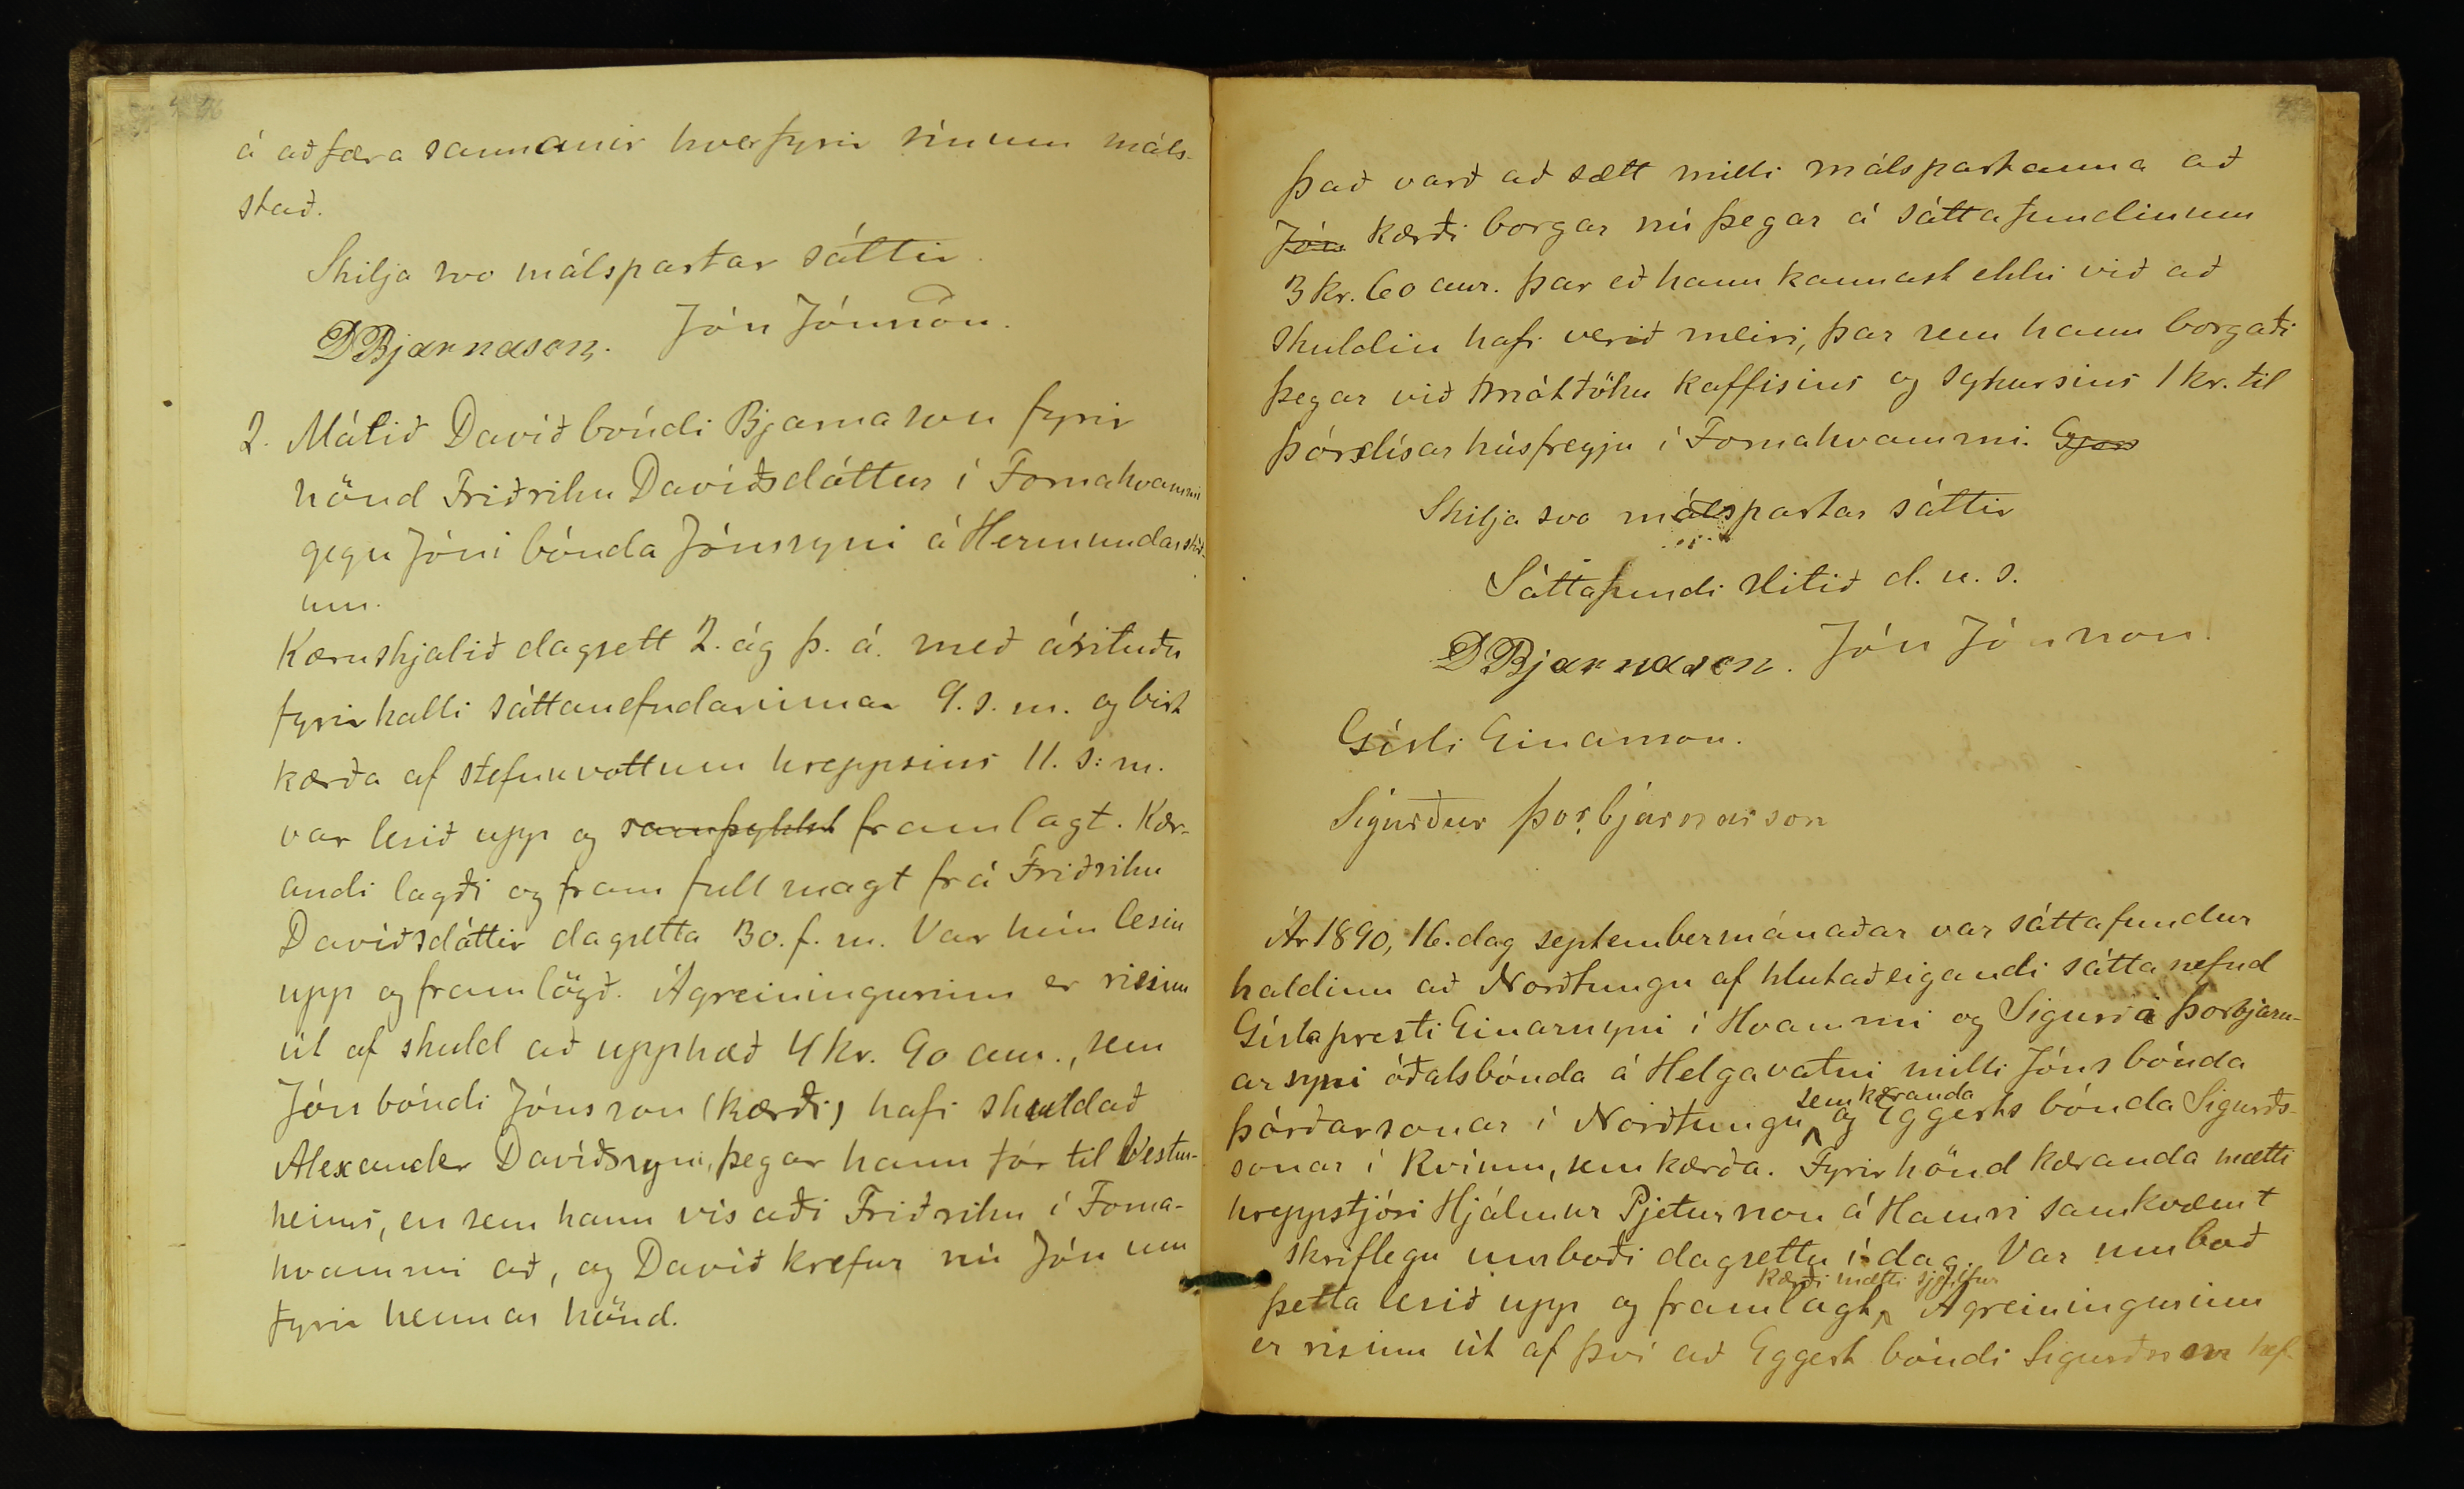 á að færa sannanir hver fyrir sínum máls-
stað.
Skilja svo málspartar sáttir.
DBjarnason. Jón Jónsson.
2. Málið Davíð bóndi Bjarnason fyrir
hönd Friðriku Davíðsdóttur í Fornahvammi
gegn Jóni bónda Jónssyni á Hermundarstöð-
um.
Kæruskjalið dagsett 2. ág þ. á. með árituðu
fyrirkalli sáttanefndarinnar 9. s. m. og birt
kærða af stefnuvottum hreppsins 11. s: m.
var lesið upp og samþykkt framlagt. Kær-
andi lagði og fram fullmagt frá Friðriku
Davíðsdóttir dagsetta 30. f. m. Var hún lesin
upp og framlögð. Ágreiningurinn er risinn
út af skuld að upphæð 4 kr. 90 aur., sem
Jón bóndi Jónsson (kærði) hafi skuldað
Alexander Davíðssyni, þegar hann fór til Vestur-
heims, en sem hann vísaði Friðriku í Forna-
hvammi að, og Davíð krefur nú Jón um
fyrir hennar hönd.
Það varð að sætt milli málspartanna að
Jón kærði borgar nú þegar á sáttafundinum
3 kr. 60 aur. þar eð hann kannast ekki við að
skuldin hafi verið meiri, þar sem hann borgaði
þegar við móttöku kaffisins og sykursins 1 kr. til
Þórdísar húsfreyju í Fornahvammi.
Skilja svo málspartar sáttir
Sáttafundi slitið d. u. s.
DBjarnason. Jón Jónsson.
Gísli Einarsson.
Sigurður Þorbjarnarson
Ár 1890, 16. dag septembermánaðar var sáttafundur
haldinn að Norðtungu af hlutaðeigandi sáttanefnd
Gísla presti Einarssyni í Hvammi og Sigurði Þorbjarn-
arsyni óðalsbónda á Helgavatni milli Jóns bónda
sem kæranda
Þórðarsonar í Norðtungu og Eggerts bónda Sigurðs-
sonar í Kvíum, sem kærða. Fyrir hönd kæranda mætti
hreppstjóri Hjálmur Pjetursson á Hamri samkvæmt
skriflegu umboði dagsettu í dag. Var umboð
Kærði mætti sjálfur
þetta lesið upp og framlagt. Ágreiningurinn
er risinn út af því að Eggert bóndi Sigurðsson hef-